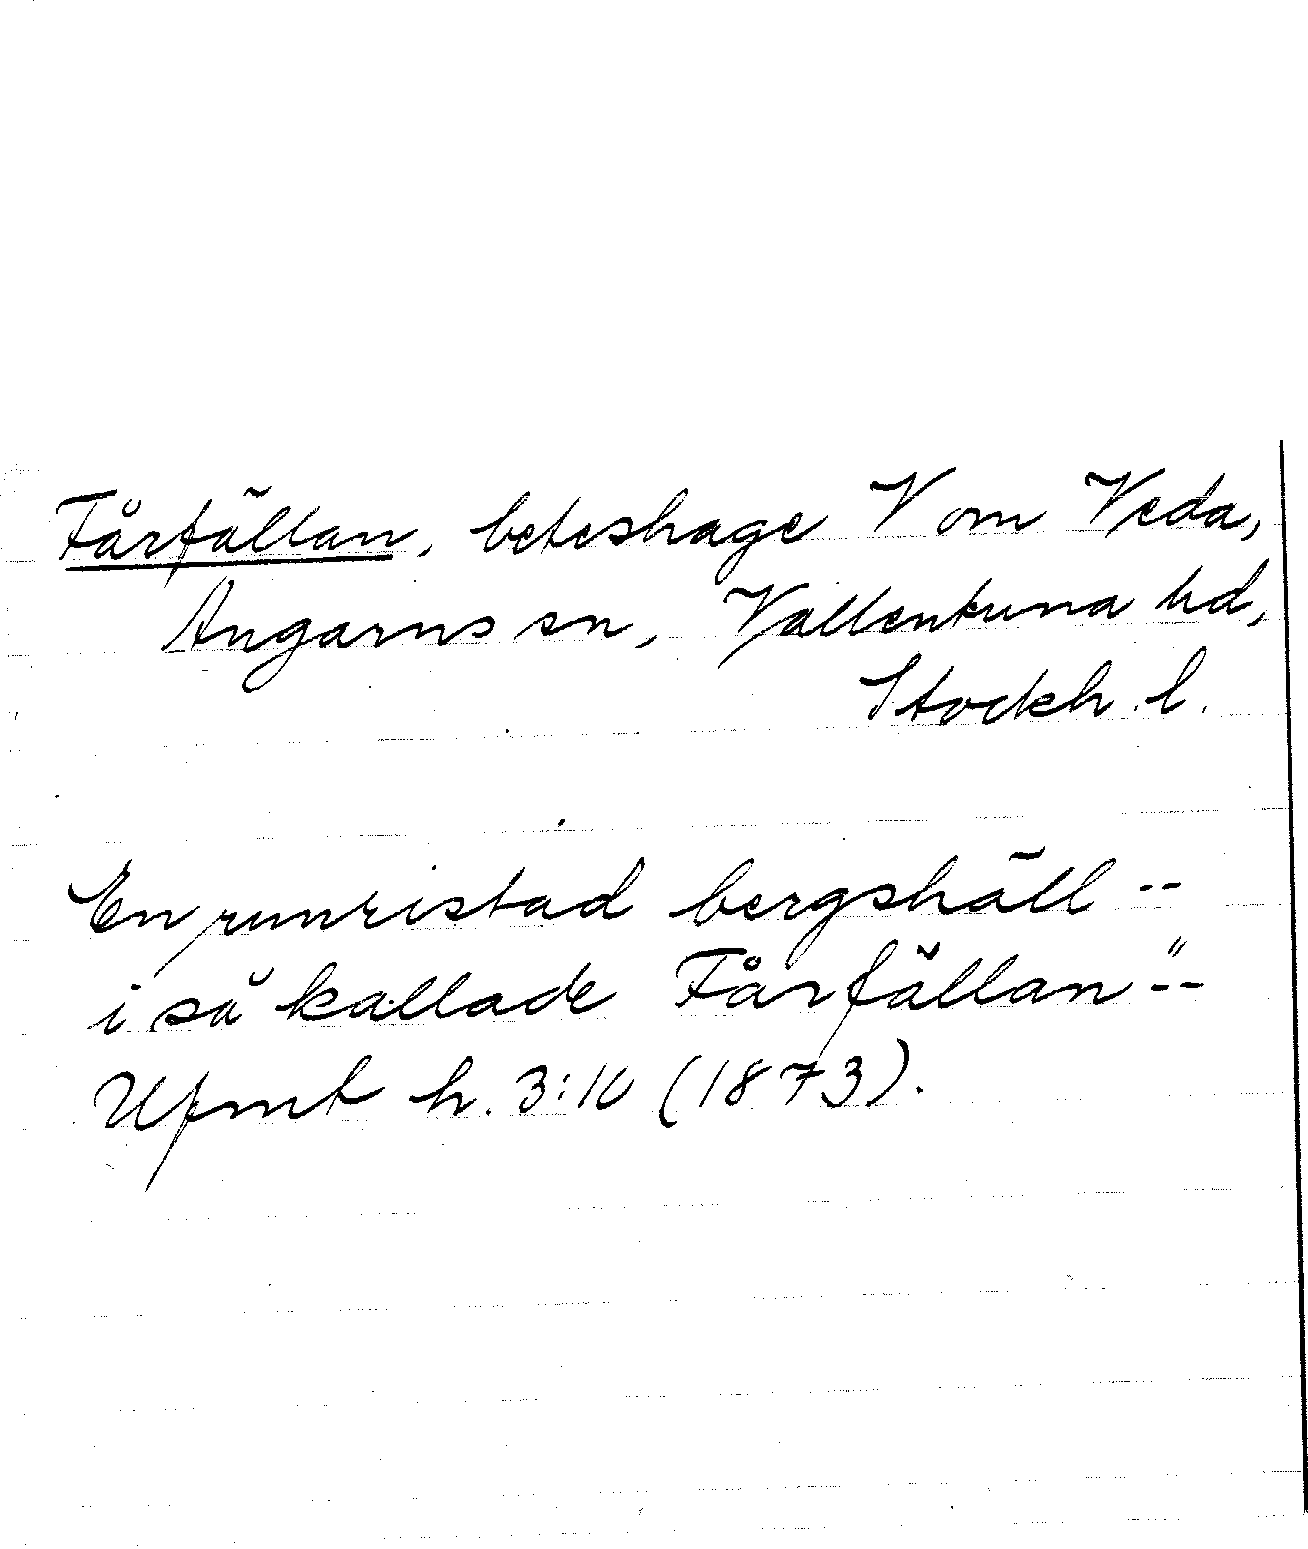 Fårfällan, beteshage V om Veda,
Angarns sn, Vallentuna hd,
Stockh. l.
En runristad bergshäll --
i så kallade Fårfällan" --
Ufmt h. 3:10 (1873).